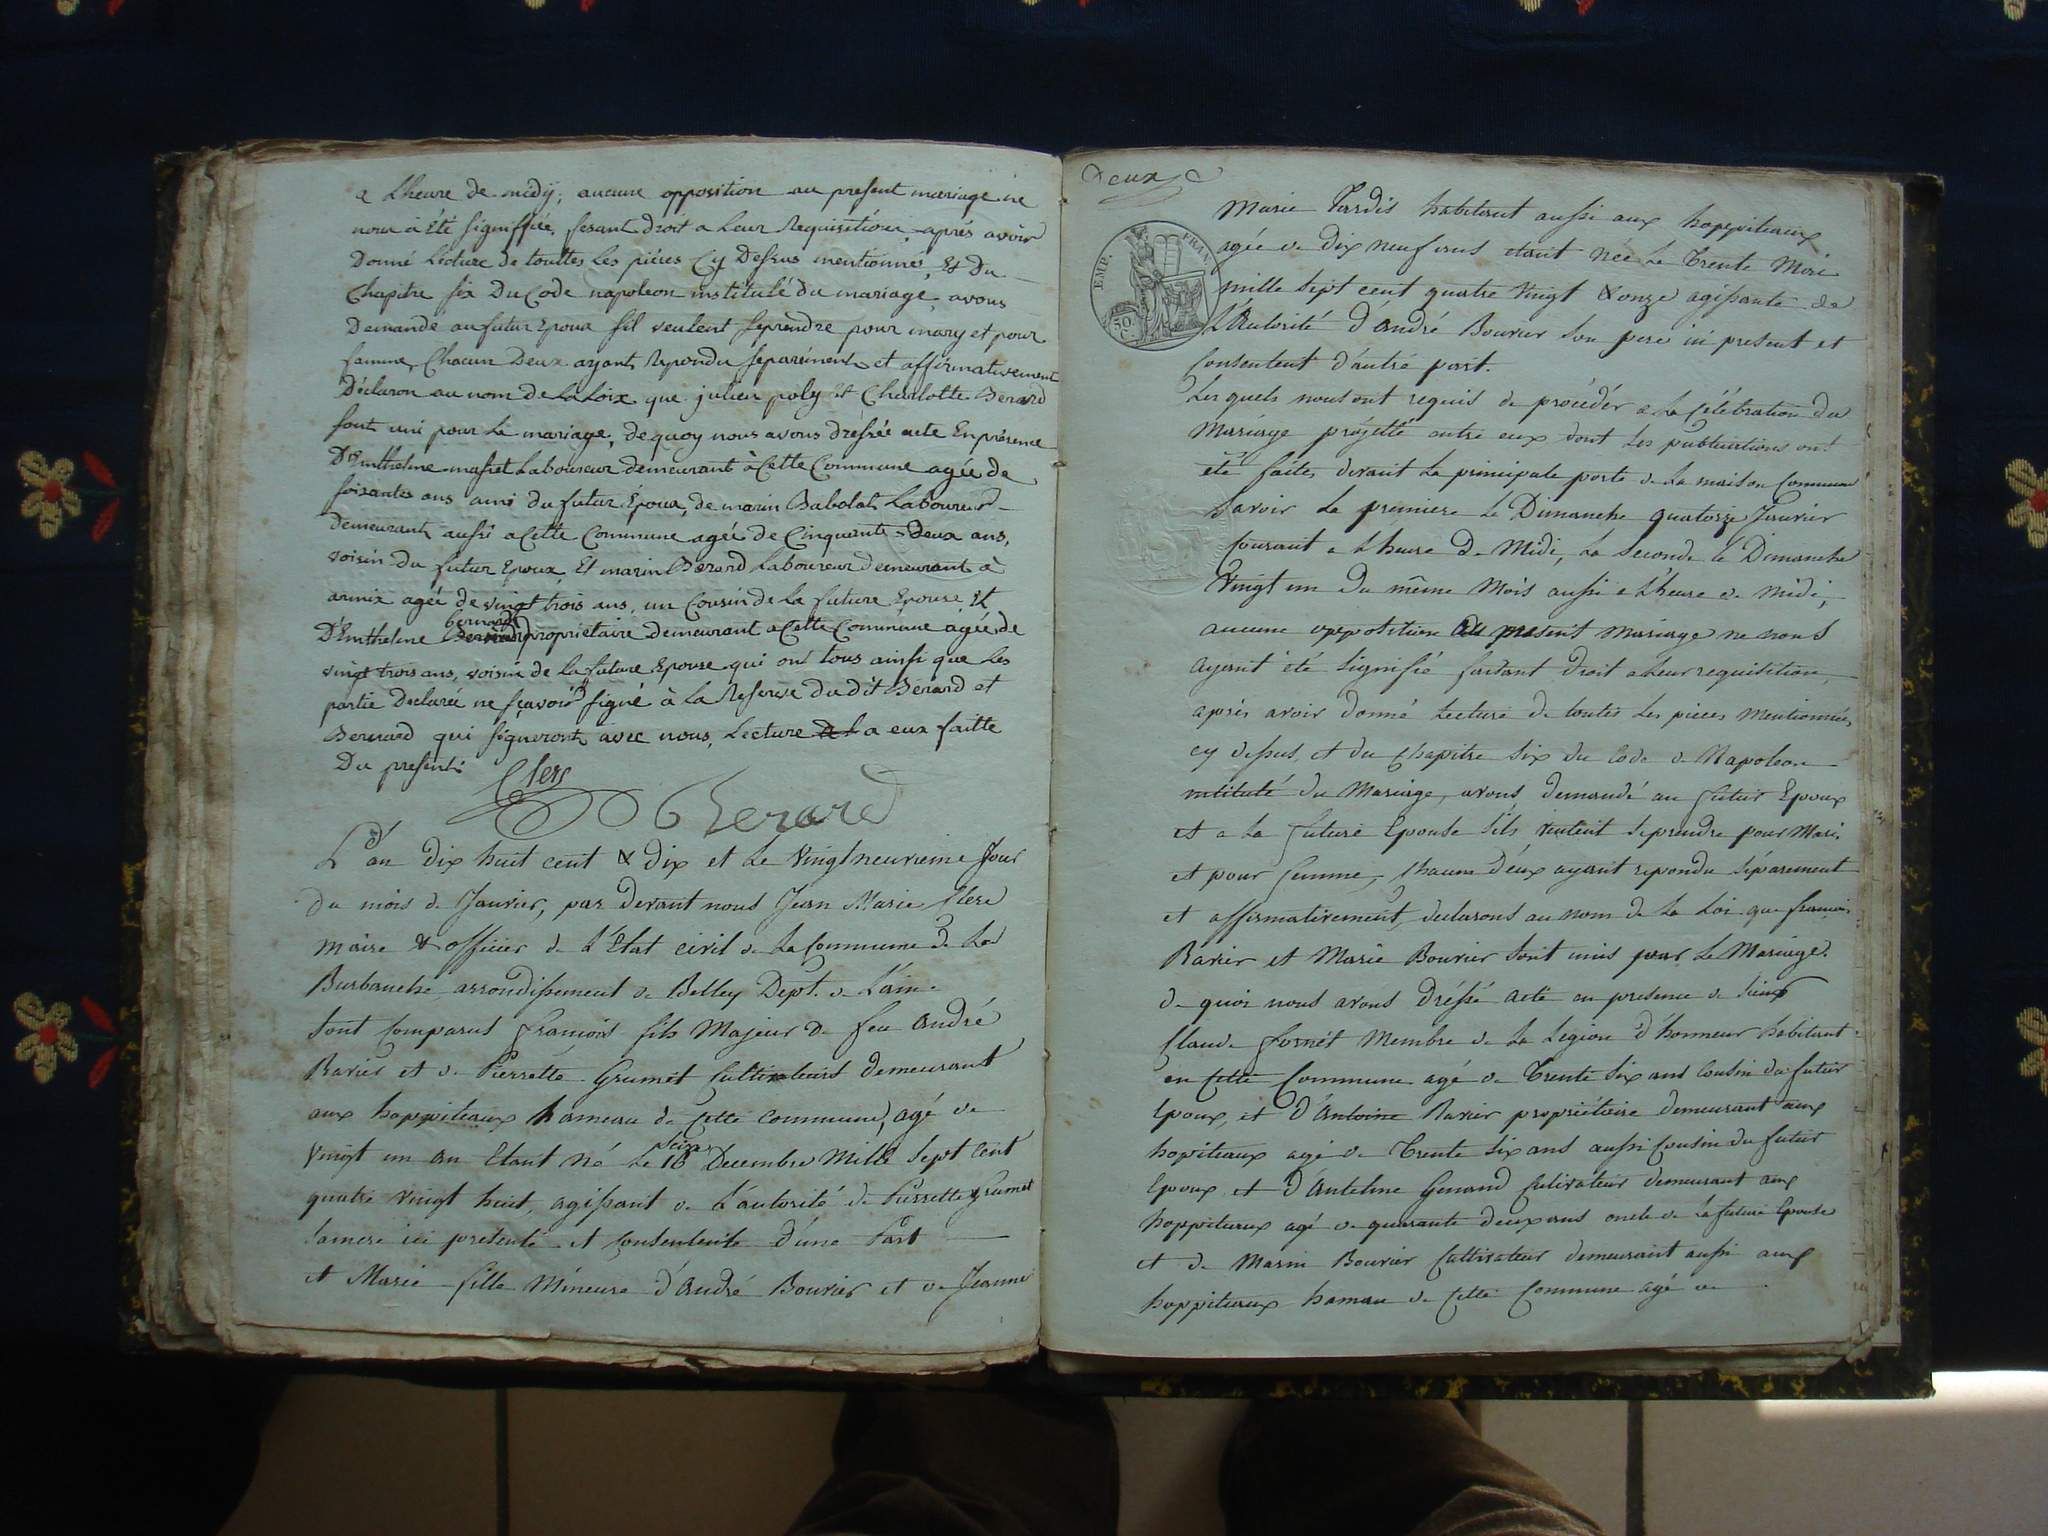 a Lheure de midÿ; aucune opposition au present mariage ne
nous à été signiffiée, fesant droit a Leur Requisition, aprés avoir
Donné Lecture de touttes Les piéces Cy Dessus mentionné, Et Du
Chapitre six Du Code napoleon institulé du mariage, avons
Demande au futur Epoux sil veulent seprendre pour mary et pour
famme, Chacun Deux ayant Repondu separément et affirmativement
Déclaron au nom de La Loix que julien poly Et Charlotte Berard
sont uni pour Le mariage, de quoy nous avons dréssée acte En présence
D'Emtheline masset Laboureur demeurant à Cette Commune agée de
soixantes ans ami du futur Époux, de marin Babolat Laboureur
demeurant aussi a Cette Commune agée de Cinquante-Deux ans,
voisin du futur Epoux, Et marin Berard Laboureur demeurant à
armix ageé de vingt trois ans, un Cousin de La future Epouse, Et
bernard
D'Emtheline propriétaire demeurant a Cette Commune agée de
vingt trois ans, voisin de La future Epouse qui ont tous ainsi que Les
partie Declaréé ne sçavoir signé à La Reserve du dit Bérard et
Berenard qui signeront avec nous, Lecture a eux faitte
Du present.
Clerc
Berard
L'an dix huit cent & dix et Le vingt neuvieme Jour
du mois de Janvier, par devant nous Jean Marie Clerc
maire & officier de L'Etat civil de La Commune de La
Burbanche arrondissement de Belley Dept. de L'ain.
sont Comparus François fils Majeur de feu André
Ravier et de Pierrette Grumet Cultivateurs demeurant
aux hoppiteaux hameau de Cette Commune, agé de
seize
vingt un an Etant Né Le 16 Decembre Mille Sept Cent
quatre vingt huit, agissant de L'autorité de Pierrette Grumet
Samere ici présente et Consentente d'une Part
et Marie fille Mineure d'André Bouvier et de Jeanne
Deux
EMP. FRAN.
50. C
Marie Tardis habitant aussi aux hoppiteaux
agée de dix neuf ans etant née Le Trente Mai
mille sept cent quatre vingt & onze agissante de
L'Autorité d'André Bouvier son pere ici present et
Consentent d'autre part.
Les quels nous ont requis de procéder a La Célébration du
Mariage projetté entre eux dont Les publications ont
été faites devant La principale porte de La maison Commune
Savoir La premiere Le Dimanche quatorze Janvier
Courant a L'heure De Midi, La seconde Le Dimanche
Vingt un Du même Mois aussi a L'heure de Midi,
aucune oppotition au present Mariage ne nous
ayant été signifié faisant Droit a Leur requisition,
après avoir donné Lecture de toutes Les pieces Mentionnées
cy dessus, et du Chapitre Six du Code de Napoleon
intitulé du Mariage, avons demandé au futur Epoux
et a La future Epouse s'ils veulent seprendre pour Mari
et pour femme, Chacun d'eux ayant repondu séparement
et affirmativement, declarons au nom de La Loi que françois
Ravier et Marie Bouvier sont unis pour Le Mariage.
de quoi nous avons dréssé acte en presence de Sieur
Claude Jornét Membre de La Legion d'honneur habitant
en Cette Commune agé de Trente Six ans Cousin du futur
Epoux, et d'Antoine Ravier propriétaire demeurant aux
hopiteaux agé de Trente Six ans aussi Cousin du futur
Epoux, et d'Antelme Genand Cultivateur demeurant aux
hoppiteaux agé de quarante deux ans oncle de La future Epouse
et de Marin Bouvier Cultivateur demeurant aussi aux
hoppiteaux hameau de Cette Commune agé de